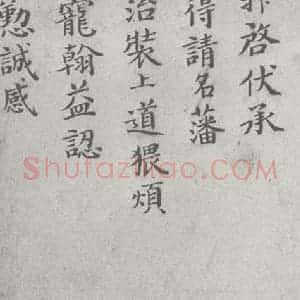 啓伏承
得請名藩
治裝上道猥煩
寵翰益認
懃誠感
ShufaZidao.COM